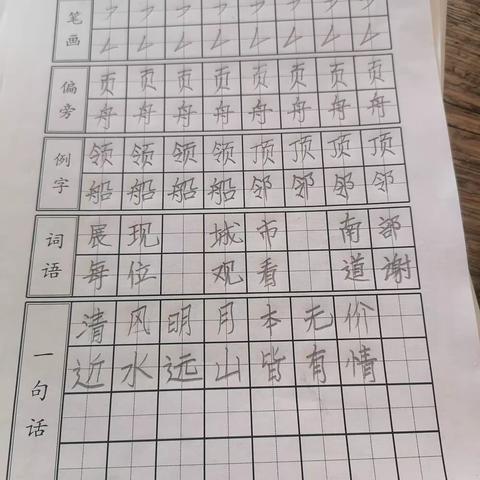 笔画
偏旁
页 页 页 页 页 页 页 页
舟 舟 舟 舟 舟 舟 舟 舟
例字
领 领 领 领 顶 顶 顶 顶
船 船 船 船 邻 邻 邻 邻
词语
展 现 城 市 南 部
每 位 观 看 道 谢
一句话
清 风 明 月 本 无 价
近 水 远 山 皆 有 情